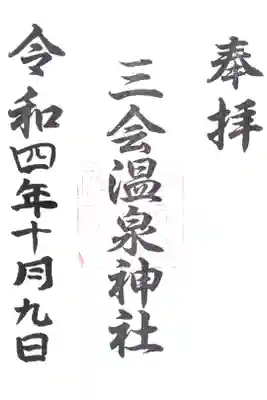 奉拝
三会温泉神社
令和四年十月九日